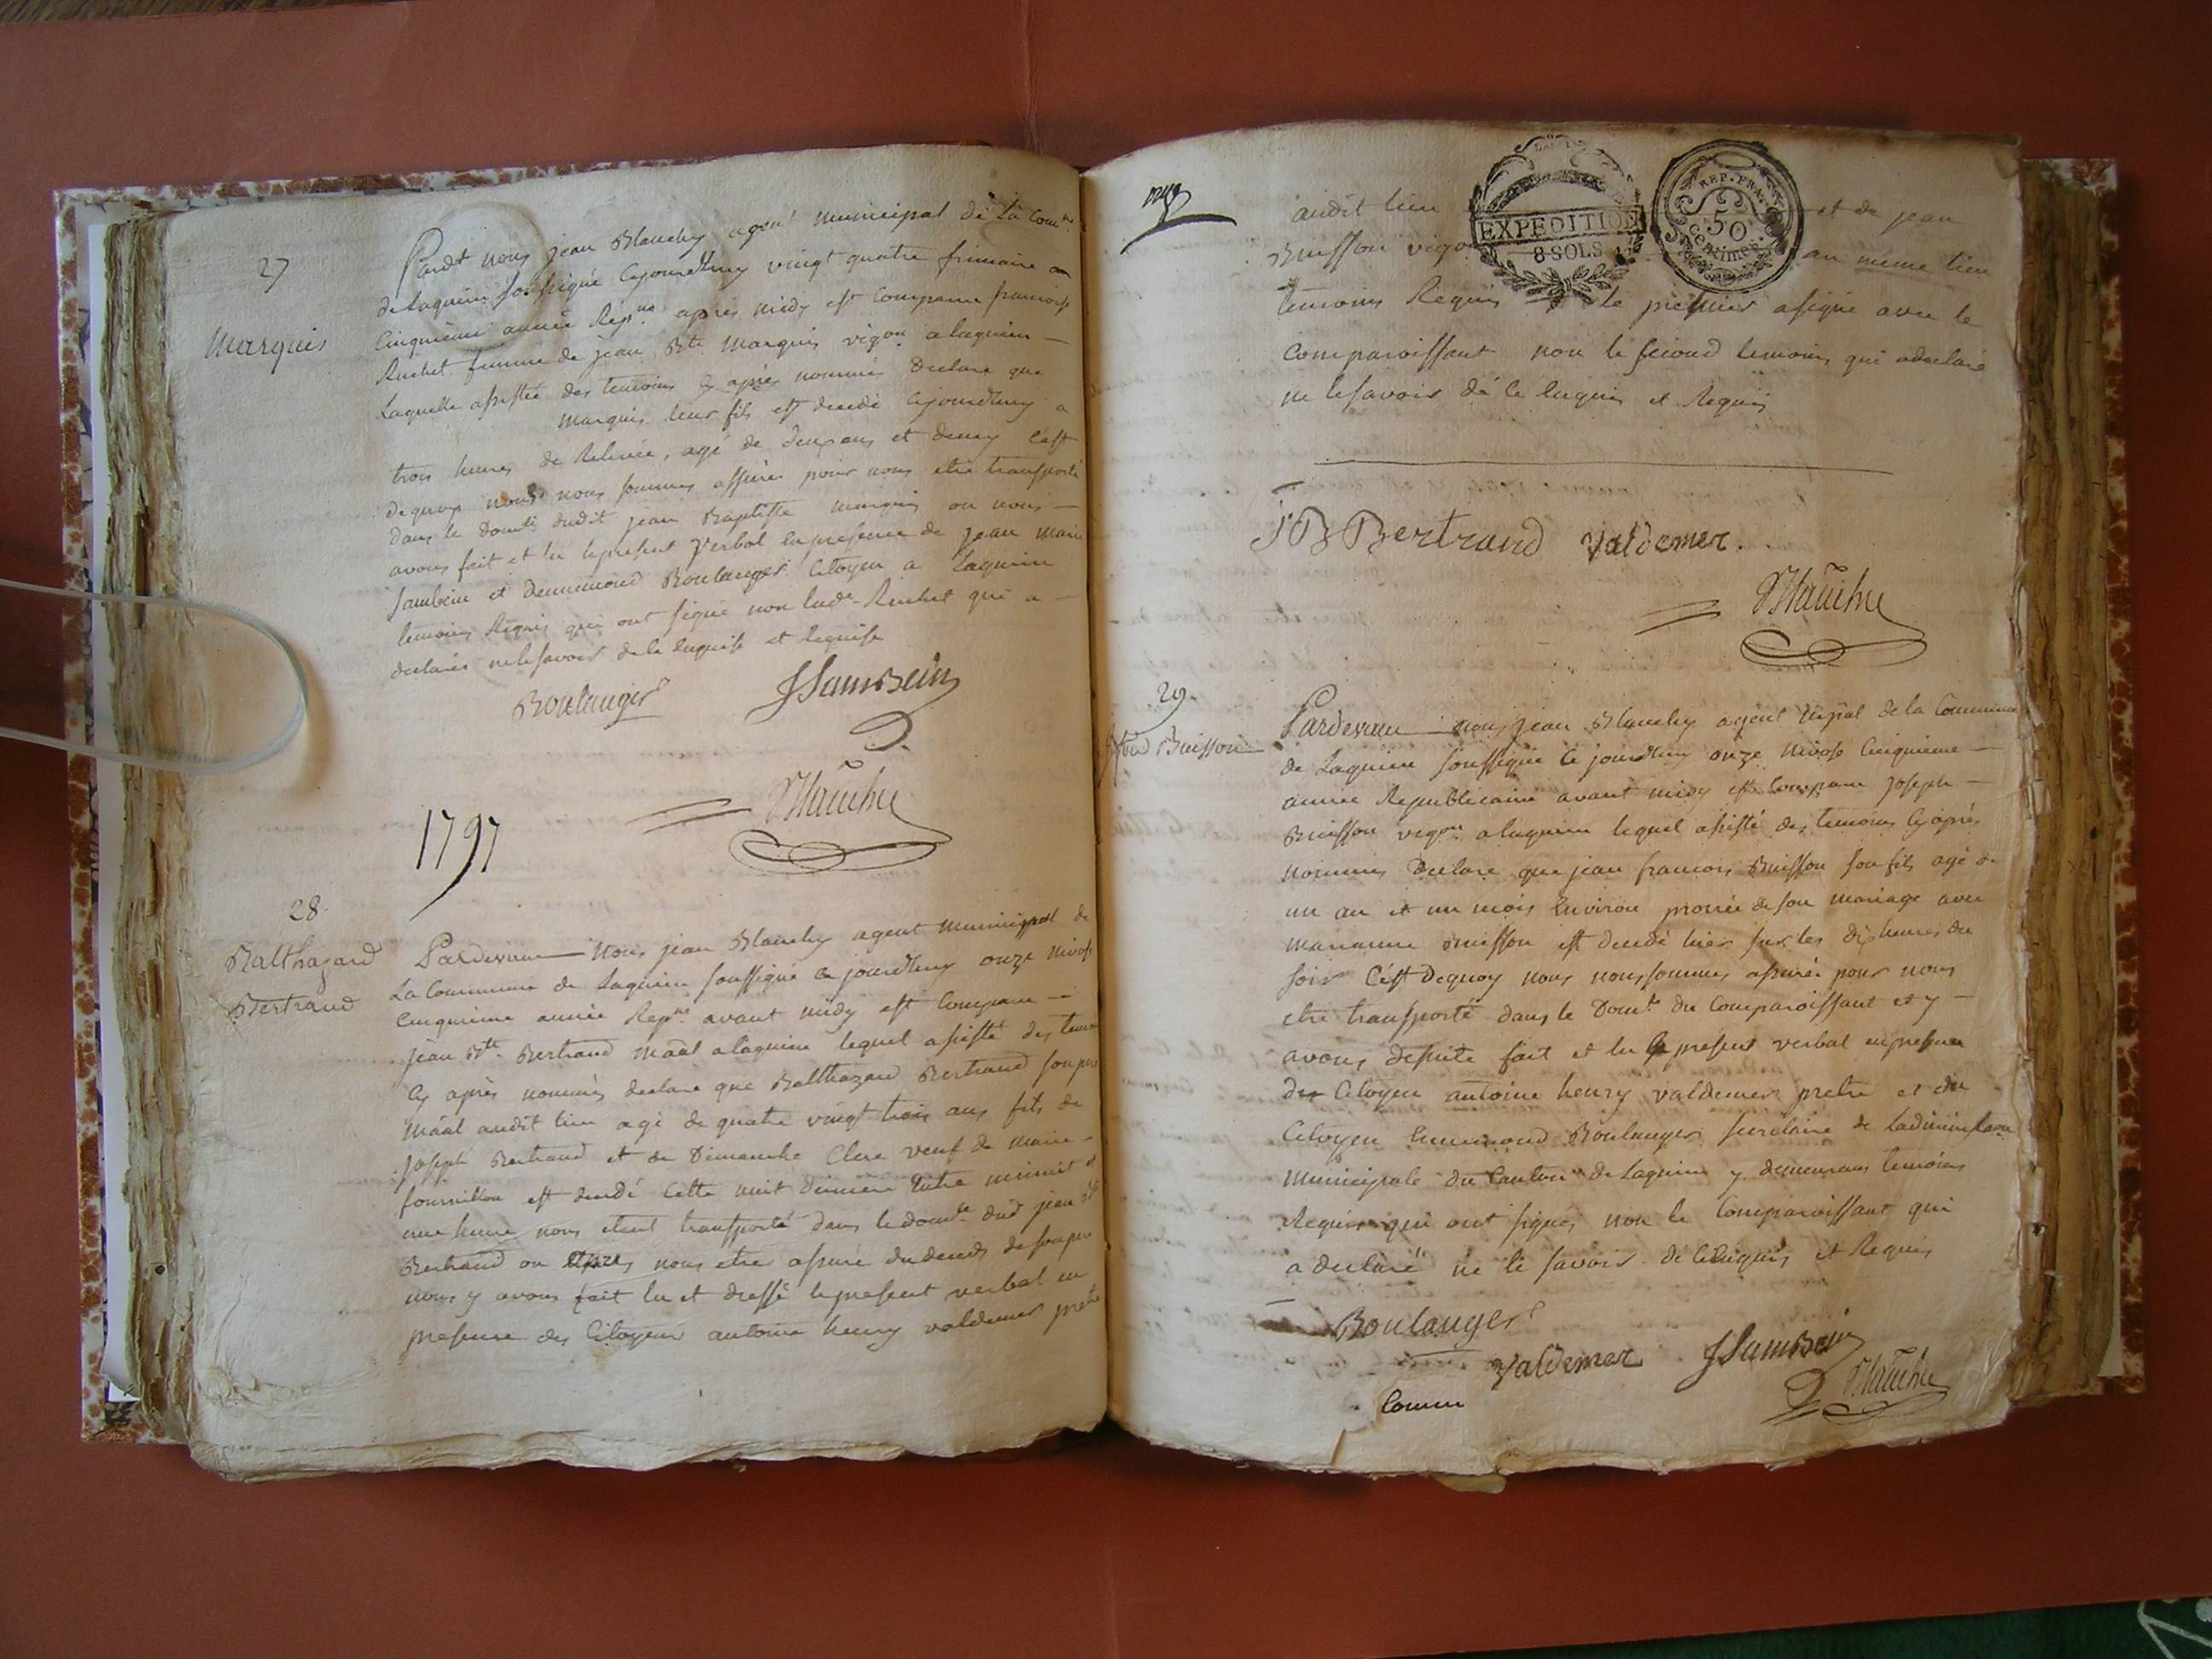 27
Marquis
Pardt nous jean Blanchy agent municipal de la Comne
de Laguieu soussigné Cejourdhuy vingt quatre frimaire an
Cinquième année Repne après midy est Comparue francoise
Ruchet femme de jean Bte Marquis vigon a laguieu
Laquelle assistée des temoins Cy après nommés Declare que
Marquis leur fils est decedé Cejourdhuy a
trois heures de Relevée, agé de deux ans et demy C'est
dequoy nous nous sommes assurés pour nous etre transporté
dans le Domle dudit jean Baptiste marquis ou nous
avons fait et lu le present Verbal en presence de jean marie
jambein et Dennemond Boulanger Citoyen a Laguieu
temoins Requis qui ont signé non lade Ruchet qui a
declaré ne le savoir de ce enquise et Requise
Boulanger JJamBein
Blanchy
1797
28
Balthazard
Bertrand
Pardevant Nous jean Blanchy agent municipal de
La Commune de Laguieu soussigné Ce jourdhuy onze nivose
Cinquième année Repne avant midy est Comparu
jean Bte Bertrand Mâal a laguieu lequel assisté des temoins
Cy après nommés declare que Balthazard Bertrand son pere
Mâal audit lieu agé de quatre vingt trois ans fils de
Joseph Bertrand et de Dimanche Clere veuf de marie
fournillon est decedé Cette nuit derniere Entre minuit et
une heure nous etant transporté dans le domle dud jean Bte
Bertrand ou après nous etre assuré du deceds de son pere
nous y avons fait lu et dressé le present verbal en
presence des Citoyens antoine henry valdemer pretre
audit lieu et de jean
Buisson vigon au meme lieu
temoins Requis le premier a signé avec le
Comparoissant non le second temoins qui a declaré
ne le savoir de Ce enquis et Requis
EXPEDITION
8 SOLS
REP. FRA.
50
centimes
JB Bertrand Valdemer.
Blanchy
29.
Buisson
Pardevant nous jean Blanchy agent mpal de la Commune
de Laguieu soussigné Ce jourdhuy onze nivose Cinquieme
année Republicaine avant midy est Comparu Joseph
Buisson vigon a laguieu lequel assisté des temoins Cy après
nommés Declare que jean francois Buisson son fils agé de
un an et un mois Environ procréé de son mariage avec
marianne Buisson est decedé hier sur les dix heures du
soir C'est Dequoy nous nous sommes assurés pour nous
etre transporté dans le Domle du Comparoissant et y
avons desuite fait et lu le present verbal en presence
des Citoyen antoine henry valdemer pretre et du
Citoyen Ennemond Boulanger secretaire de Ladministration
Municipale du Canton de Laguieu y demeurans temoins
Requis qui ont signés non le Comparoissant qui
a declaré ne le savoir de Ce enquis et Requis
Boulanger
Valdemer JJamBein
Blanchy
Comm